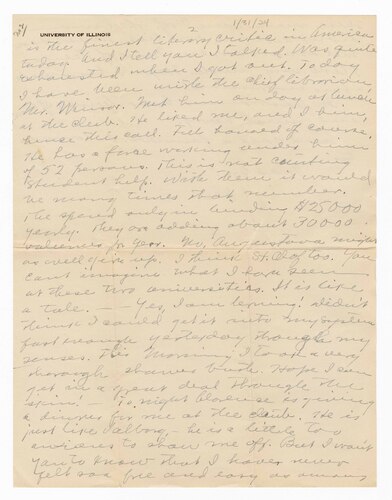 UNIVERSITY OF ILLINOIS
2
1/31/24
is the finest literary critic in America
today. And I tell you I talked. Was quite
exhausted when I got out. Today
I have been with the chief librarian,
Mr. Windsor. Met him one day at lunch
at the club. He liked me, and I him,
hence this call. Felt honored of course.
He has a force working under him
of 52 persons. This is not counting
student help. With them it would
be many times that number.
He spend only in binding $25000
yearly. They are adding about 30000
volumes per year. No, Augustana might
as well give up. I think St. Olaf too. You
can't imagine what I have seen
at these two universities. It is like
a tale. — Yes, I am learning! Didn't
think I could get it into my system
fast enough yesterday through my
senses. This morning I took a very
thorough shower bath. Hope I can
get in a great deal through the
skin! To night is giving
a dinner for me at the club. He is
just like — he is a little too
anxious to show me off. But I want
you to know that I have never
felt so free and easy as among